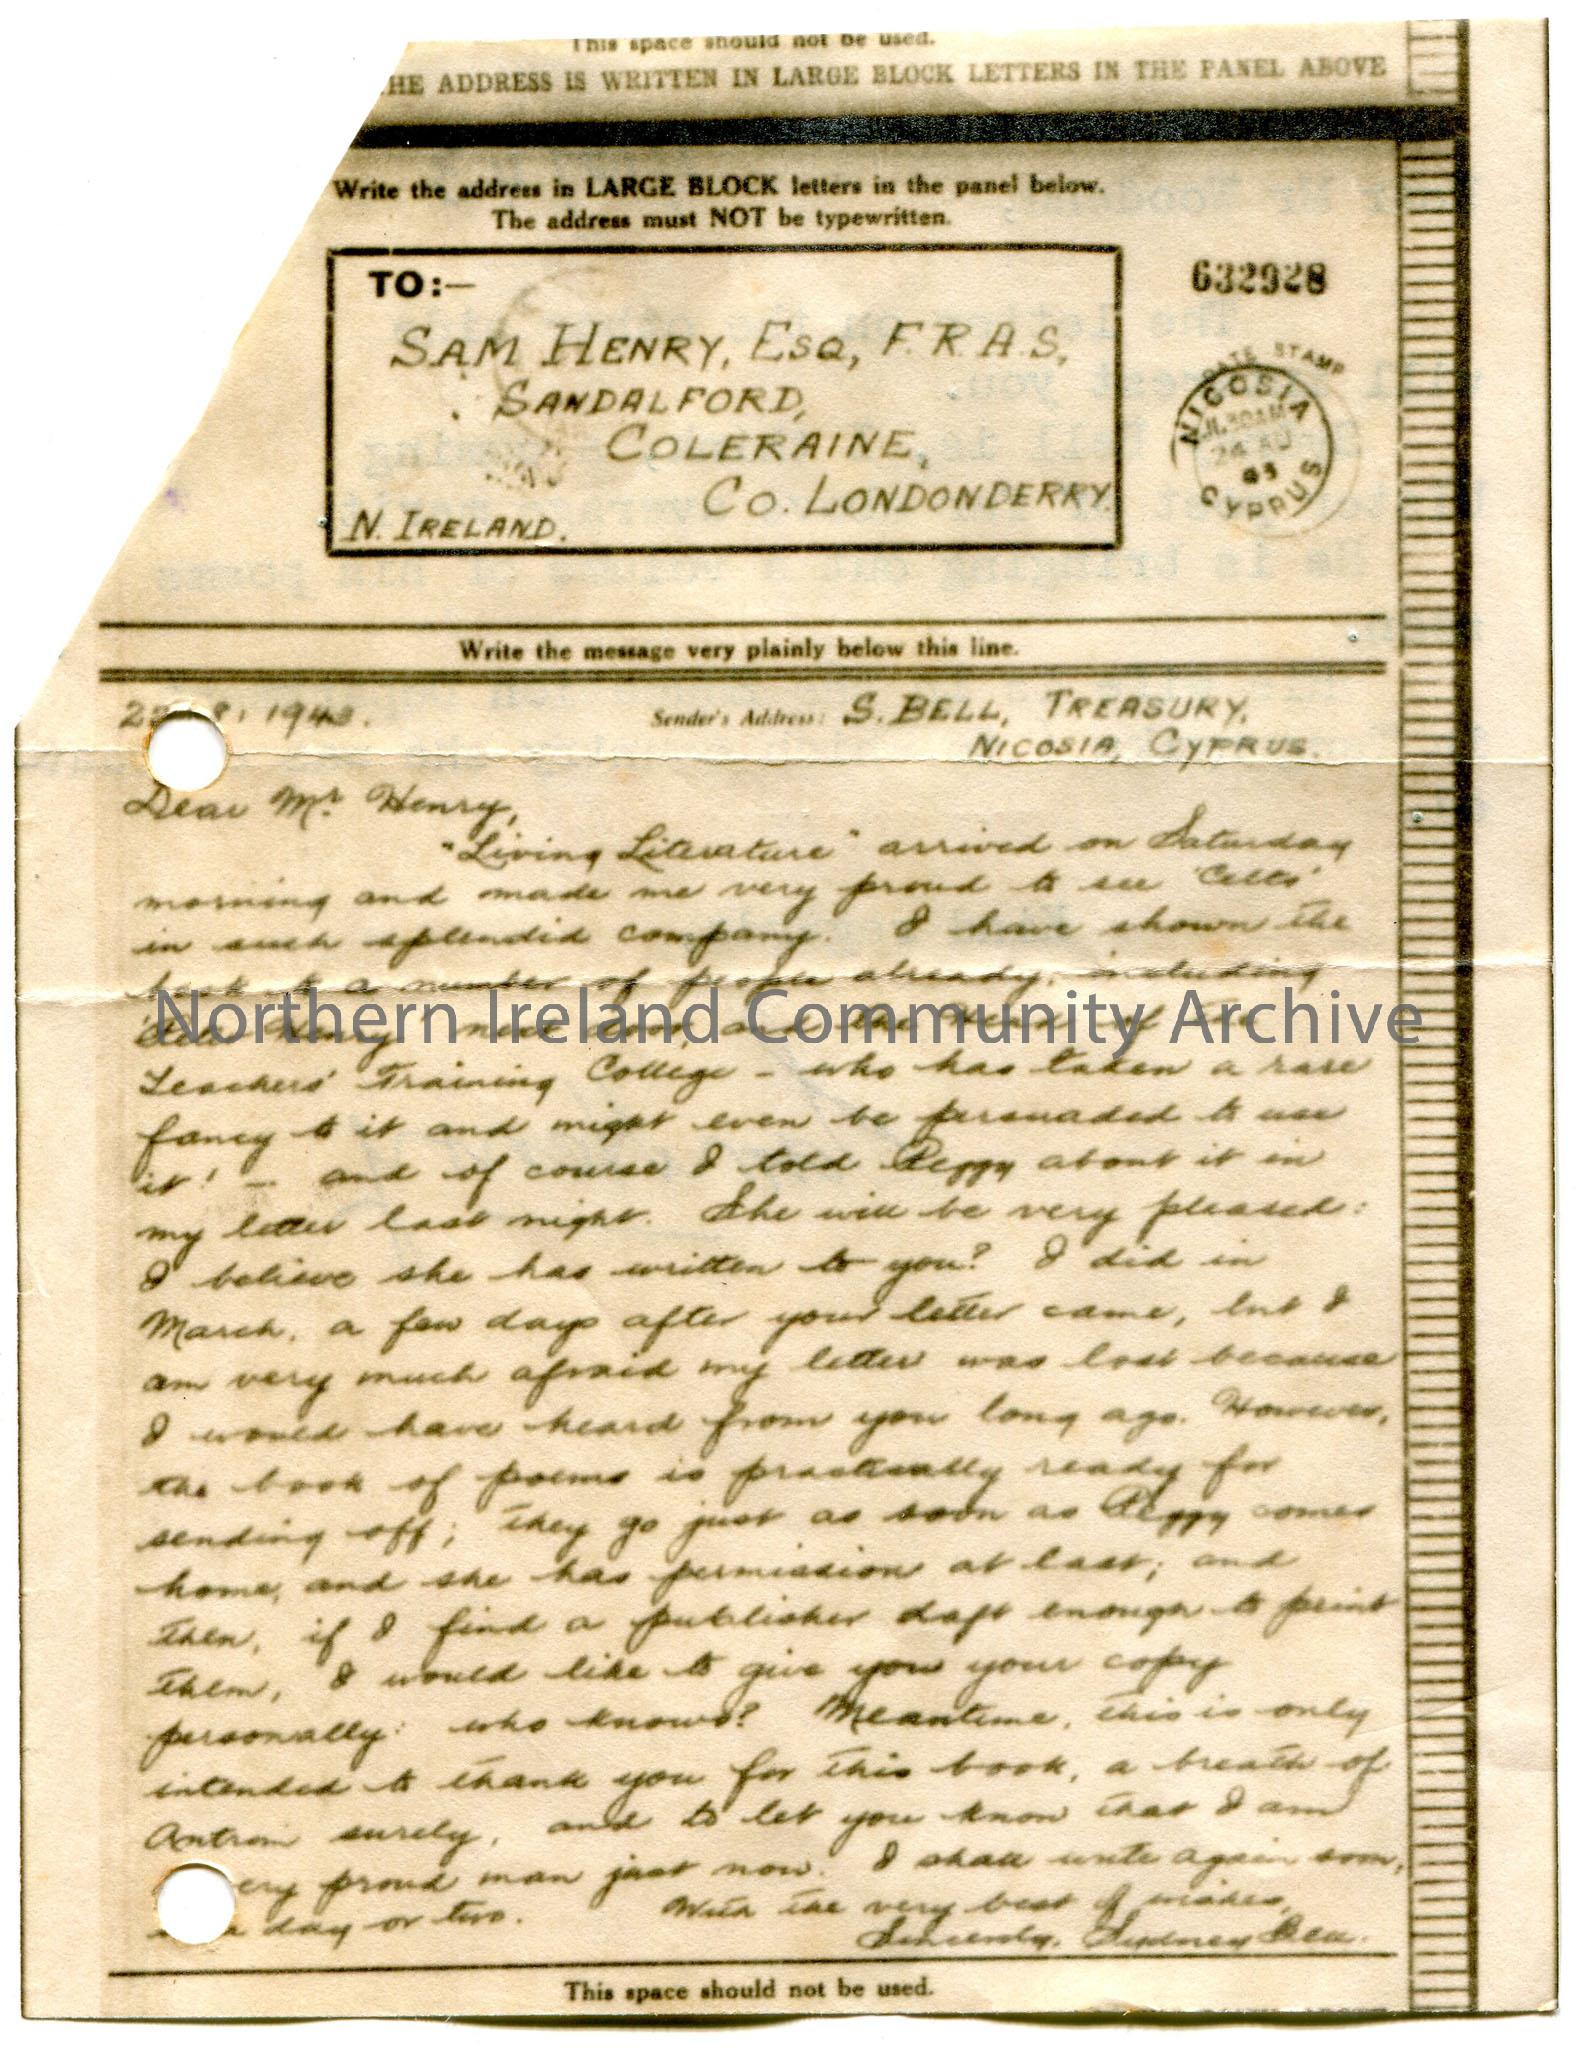 This space should not be used.
HE ADDRESS IS WRITTEN IN LARGE BLOCK LETTERS IN THE PANEL ABOVE
Write the address in LARGE BLOCK letters in the panel below.
The address must NOT be typewritten.
TO:—
SAM HENRY, ESQ, F.R.A.S,
SANDALFORD,
COLERAINE,
CO. LONDONDERRY.
N. IRELAND.
632928
DATE STAMP
NICOSIA
CYPRUS
Write the message very plainly below this line.
8. 1943.
Sender's Address: S. BELL, TREASURY,
NICOSIA, CYPRUS.
Dear Mr Henry,
"Living Literature" arrived on Saturday
morning and made me very proud to see 'Celts'
in such splendid company. I have shown the
book to a number of people already, including
Northern Ireland Community Archive
Teachers' Training College – who has taken a rare
fancy to it and might even be persuaded to use
it! – and of course I told Peggy about it in
my letter last night. She will be very pleased:
I believe she has written to you? I did in
March, a few days after your letter came, but I
am very much afraid my letter was lost because
I would have heard from you long ago. However,
the book of poems is practically ready for
sending off; they go just as soon as Peggy comes
home, and she has permission at last; and
then, if I find a publisher daft enough to print
them, I would like to give you your copy
personally: who knows? Meantime, this is only
intended to thank you for this book, a breath of
Antrim surely, and to let you know that I am
ery proud man just now. I shall write again soon,
day or two. With the very best of wishes,
Sincerely, Sydney Bell.
This space should not be used.